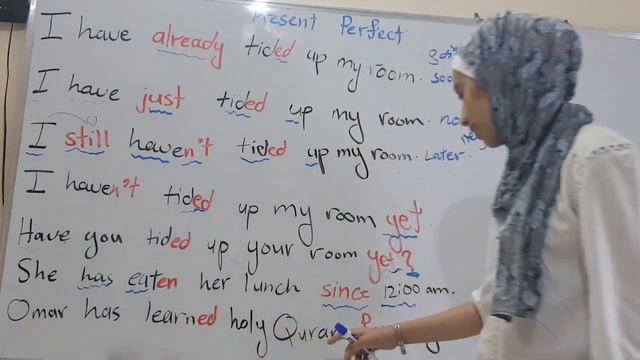 Present Perfect
I have already tided up my room. soo
I have just tided up my room. no
I still haven't tided up my room. Later
I haven't tided up my room yet
Have you tided up your room yet?
She has eaten her lunch since 12:00 am.
Omar has learned holy Quran